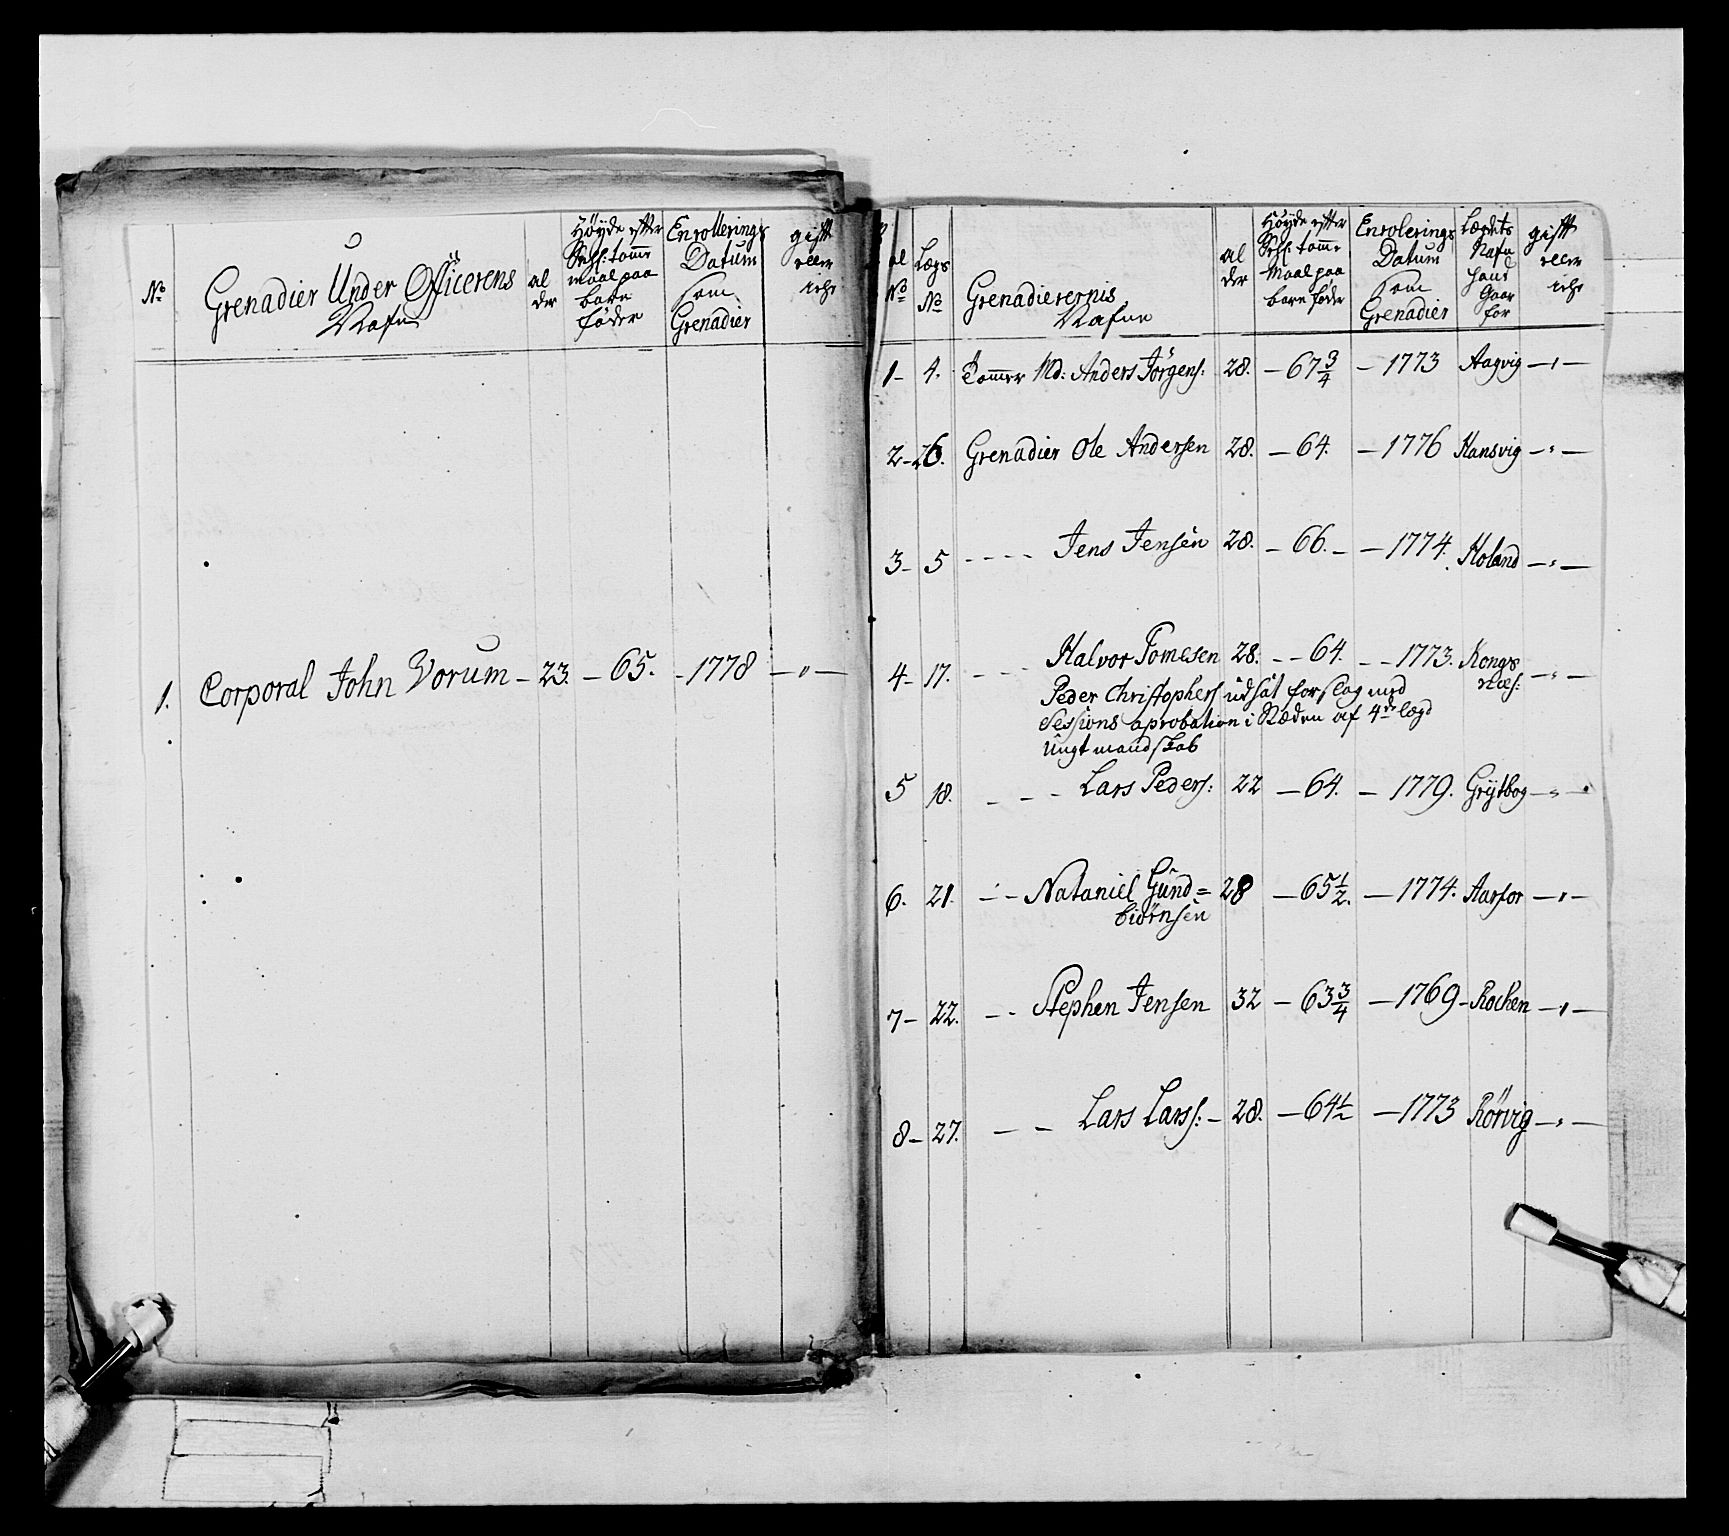 No
Grenadier Under Officerens
Nafn
al
der
Høyde efter
Sæhl: tomr
maal paa
bare
føder
Enrollerings
Datum
som
Grenadier
gift
eller
icke
1. Corporal John Vorum - 23. - 65. - 1778 - " -
al
No
Lægs
No
Grenaderernis
Nafne
al
der
Høyde efter
Sæhl: tom:
Maal paa
bare føder
Enrolerings
Datum
som
Grenadier
Lægdets
Nafn
hand
Gaar
for
gift
eller
icke
1 - 4. Tommer Md: Anders Jörgens: 28. - 67 3/4 - 1773 Aagvig - " -
2 - 26. Grenadier Ole Andersen 28. - 64. - 1776 Hansvig - " -
3 - 5 - - - - Jens Jensen 28. - 66. - - 1774. Holand - " -
4 - 17. - - - Halvor Tomesen 28. - - 64. - - 1773. Kongs
næs: - " -
Peder Christophers udsat forslag med
Sessions aprobation i Ræden af 4de lægd
Ungt mandskab
5 18. - - - Lars Peders: 22 - 64. - 1779. Grÿtbog - " -
6. 21. - - Nataniel Gund= 28 - 65 1/2. - 1774. Aarfor - " -
biørnsen
7 - 22. - - Stephen Jensen 32 - 63 3/4 - 1769 - Rochen - " -
8 - 27. - - Lars Larss: - 28. - 64 1/2 - 1773 Rörvig - " -